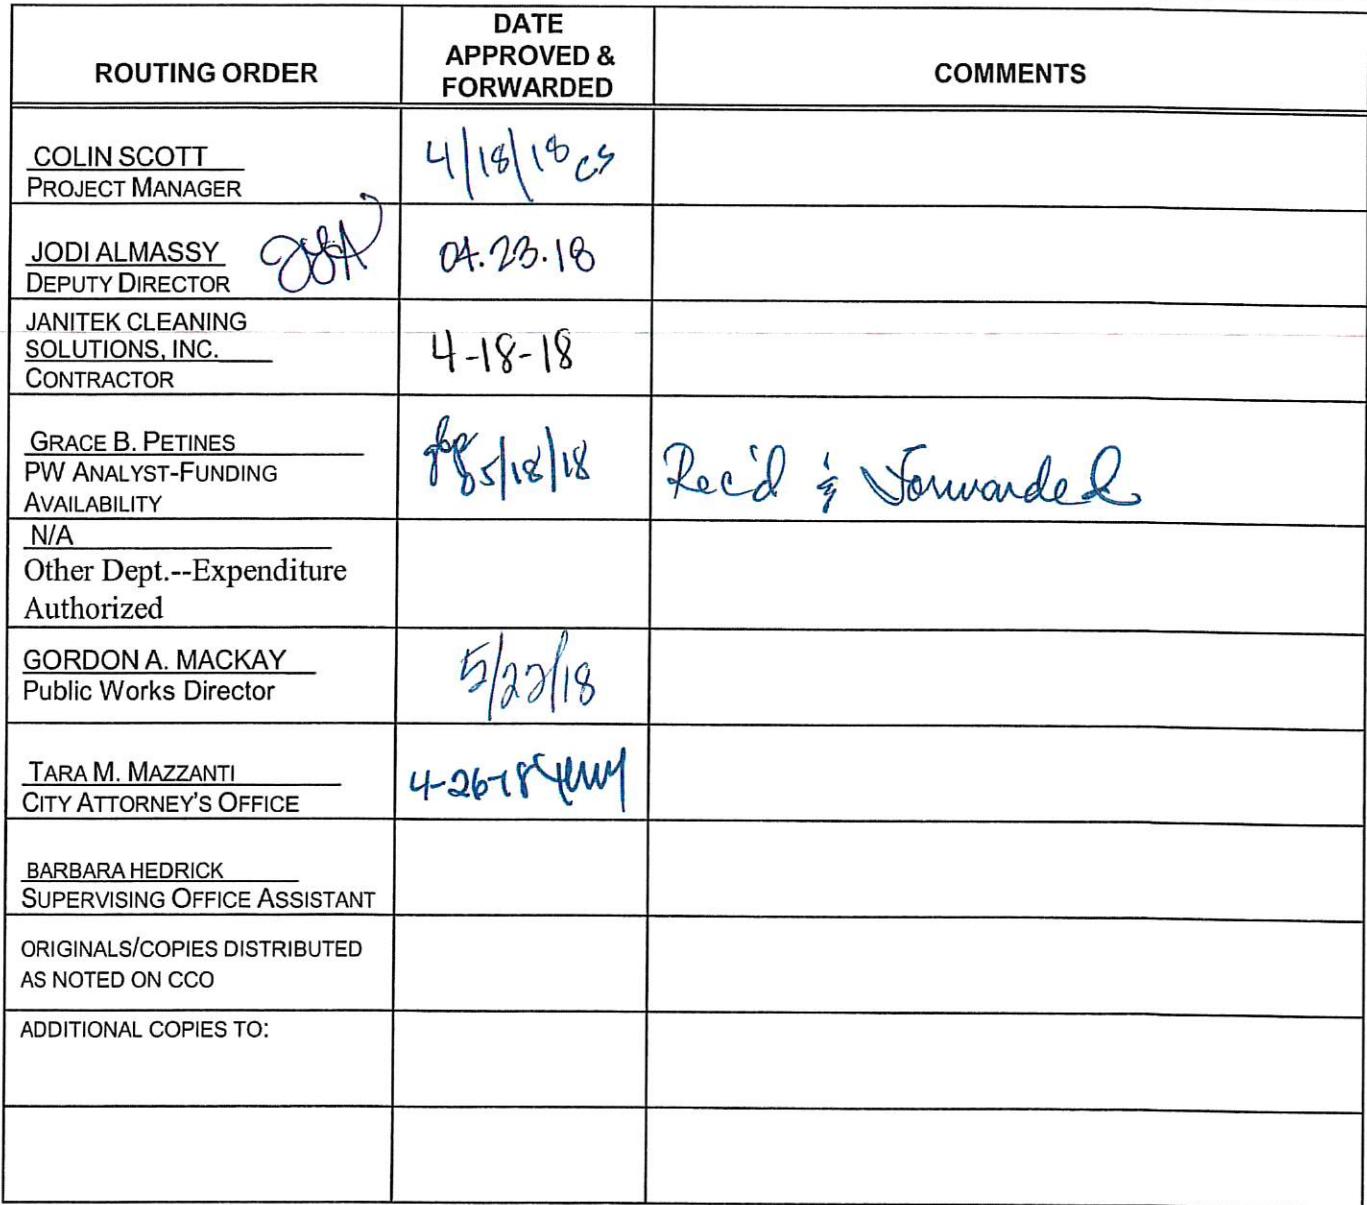 ROUTING ORDER
DATE
APPROVED &
FORWARDED
COMMENTS
COLIN SCOTT
PROJECT MANAGER
4/18/18 CS
JODI ALMASSY
DEPUTY DIRECTOR
04.23.18
JANITEK CLEANING
SOLUTIONS, INC.
CONTRACTOR
4-18-18
GRACE B. PETINES
PW ANALYST-FUNDING
AVAILABILITY
gbp 5/18/18
Rec'd & Forwarded
N/A
Other Dept.--Expenditure
Authorized
GORDON A. MACKAY
Public Works Director
5/22/18
TARA M. MAZZANTI
CITY ATTORNEY'S OFFICE
4-26-18
BARBARA HEDRICK
SUPERVISING OFFICE ASSISTANT
ORIGINALS/COPIES DISTRIBUTED
AS NOTED ON CCO
ADDITIONAL COPIES TO: